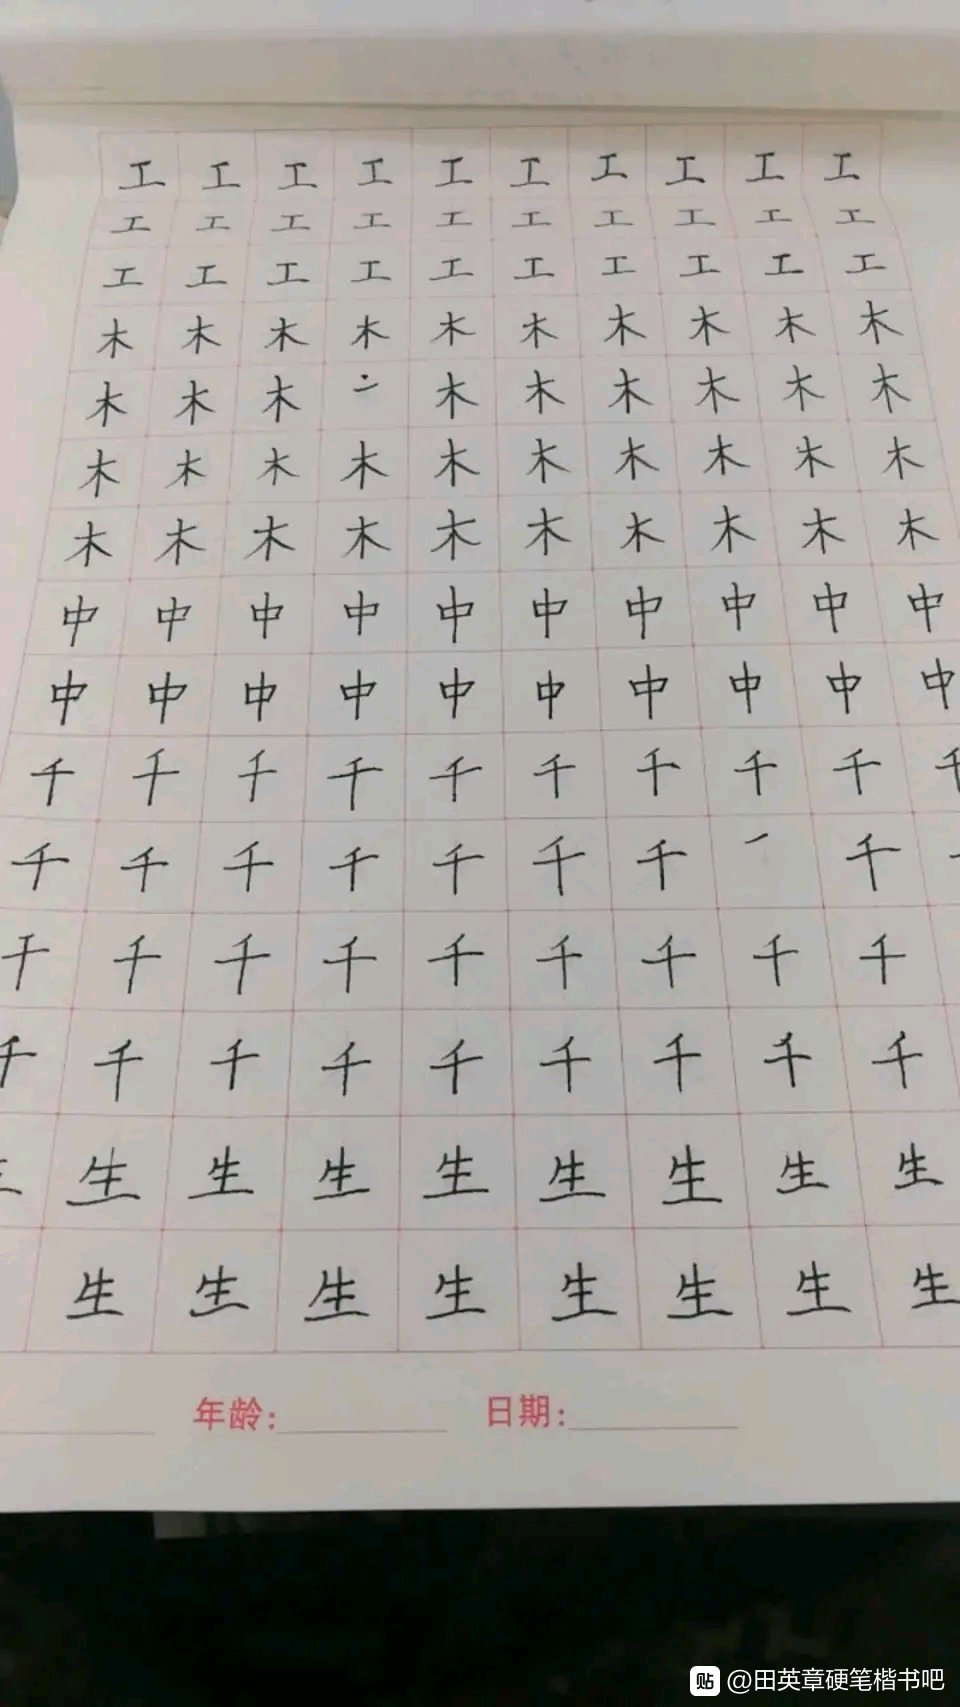 工 工 工 工 工 工 工 工 工 工
工 工 工 工 工 工 工 工 工 工
工 工 工 工 工 工 工 工 工 工
木 木 木 木 木 木 木 木 木 木
木 木 木 木 木 木 木 木 木
木 木 木 木 木 木 木 木 木 木
木 木 木 木 木 木 木 木 木 木
中 中 中 中 中 中 中 中 中 中
中 中 中 中 中 中 中 中 中 中
千 千 千 千 千 千 千 千 千 千
千 千 千 千 千 千 千 千
千 千 千 千 千 千 千 千 千
千 千 千 千 千 千 千 千 千
生 生 生 生 生 生 生 生
生 生 生 生 生 生 生 生
年龄: 日期:
贴 @田英章硬笔楷书吧